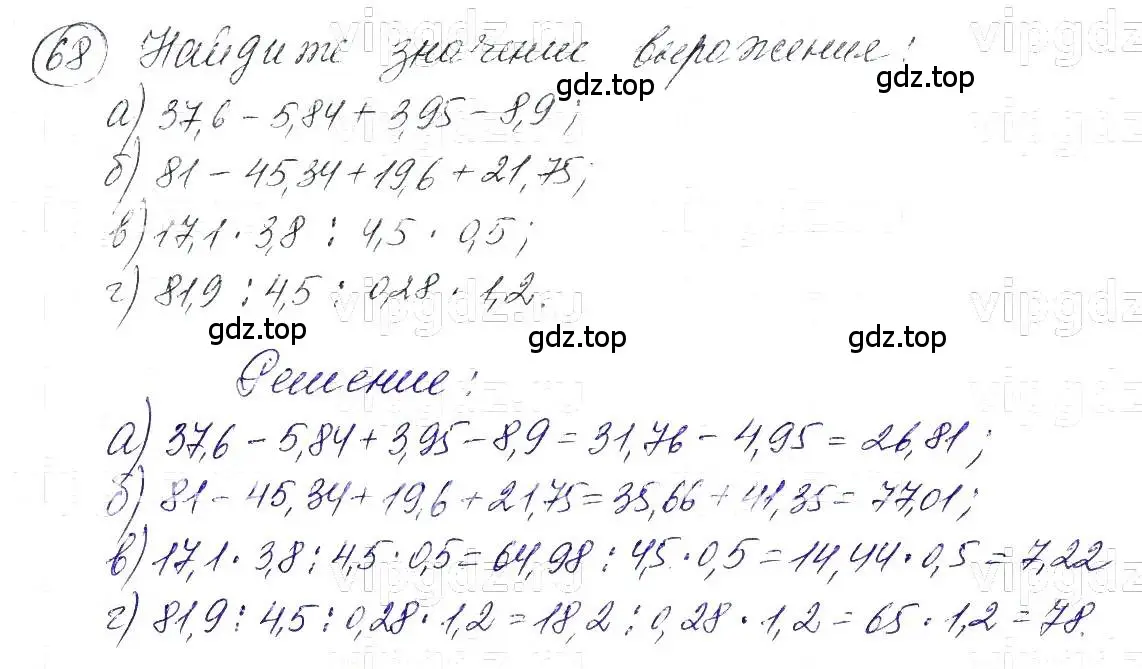 68 Найдите значение выражения:
а) 37,6 - 5,84 + 3,95 - 8,9;
б) 81 - 45,34 + 19,6 + 21,75;
в) 17,1 · 3,8 : 4,5 · 0,5;
г) 81,9 : 4,5 : 0,28 · 1,2.
Решение:
а) 37,6 - 5,84 + 3,95 - 8,9 = 31,76 - 4,95 = 26,81;
б) 81 - 45,34 + 19,6 + 21,75 = 35,66 + 41,35 = 77,01;
в) 17,1 · 3,8 : 4,5 · 0,5 = 64,98 : 4,5 · 0,5 = 14,44 · 0,5 = 7,22
г) 81,9 : 4,5 : 0,28 · 1,2 = 18,2 : 0,28 · 1,2 = 65 · 1,2 = 78.
gdz.top gdz.top
gdz.top gdz.top gdz.top
vipgdz.ru